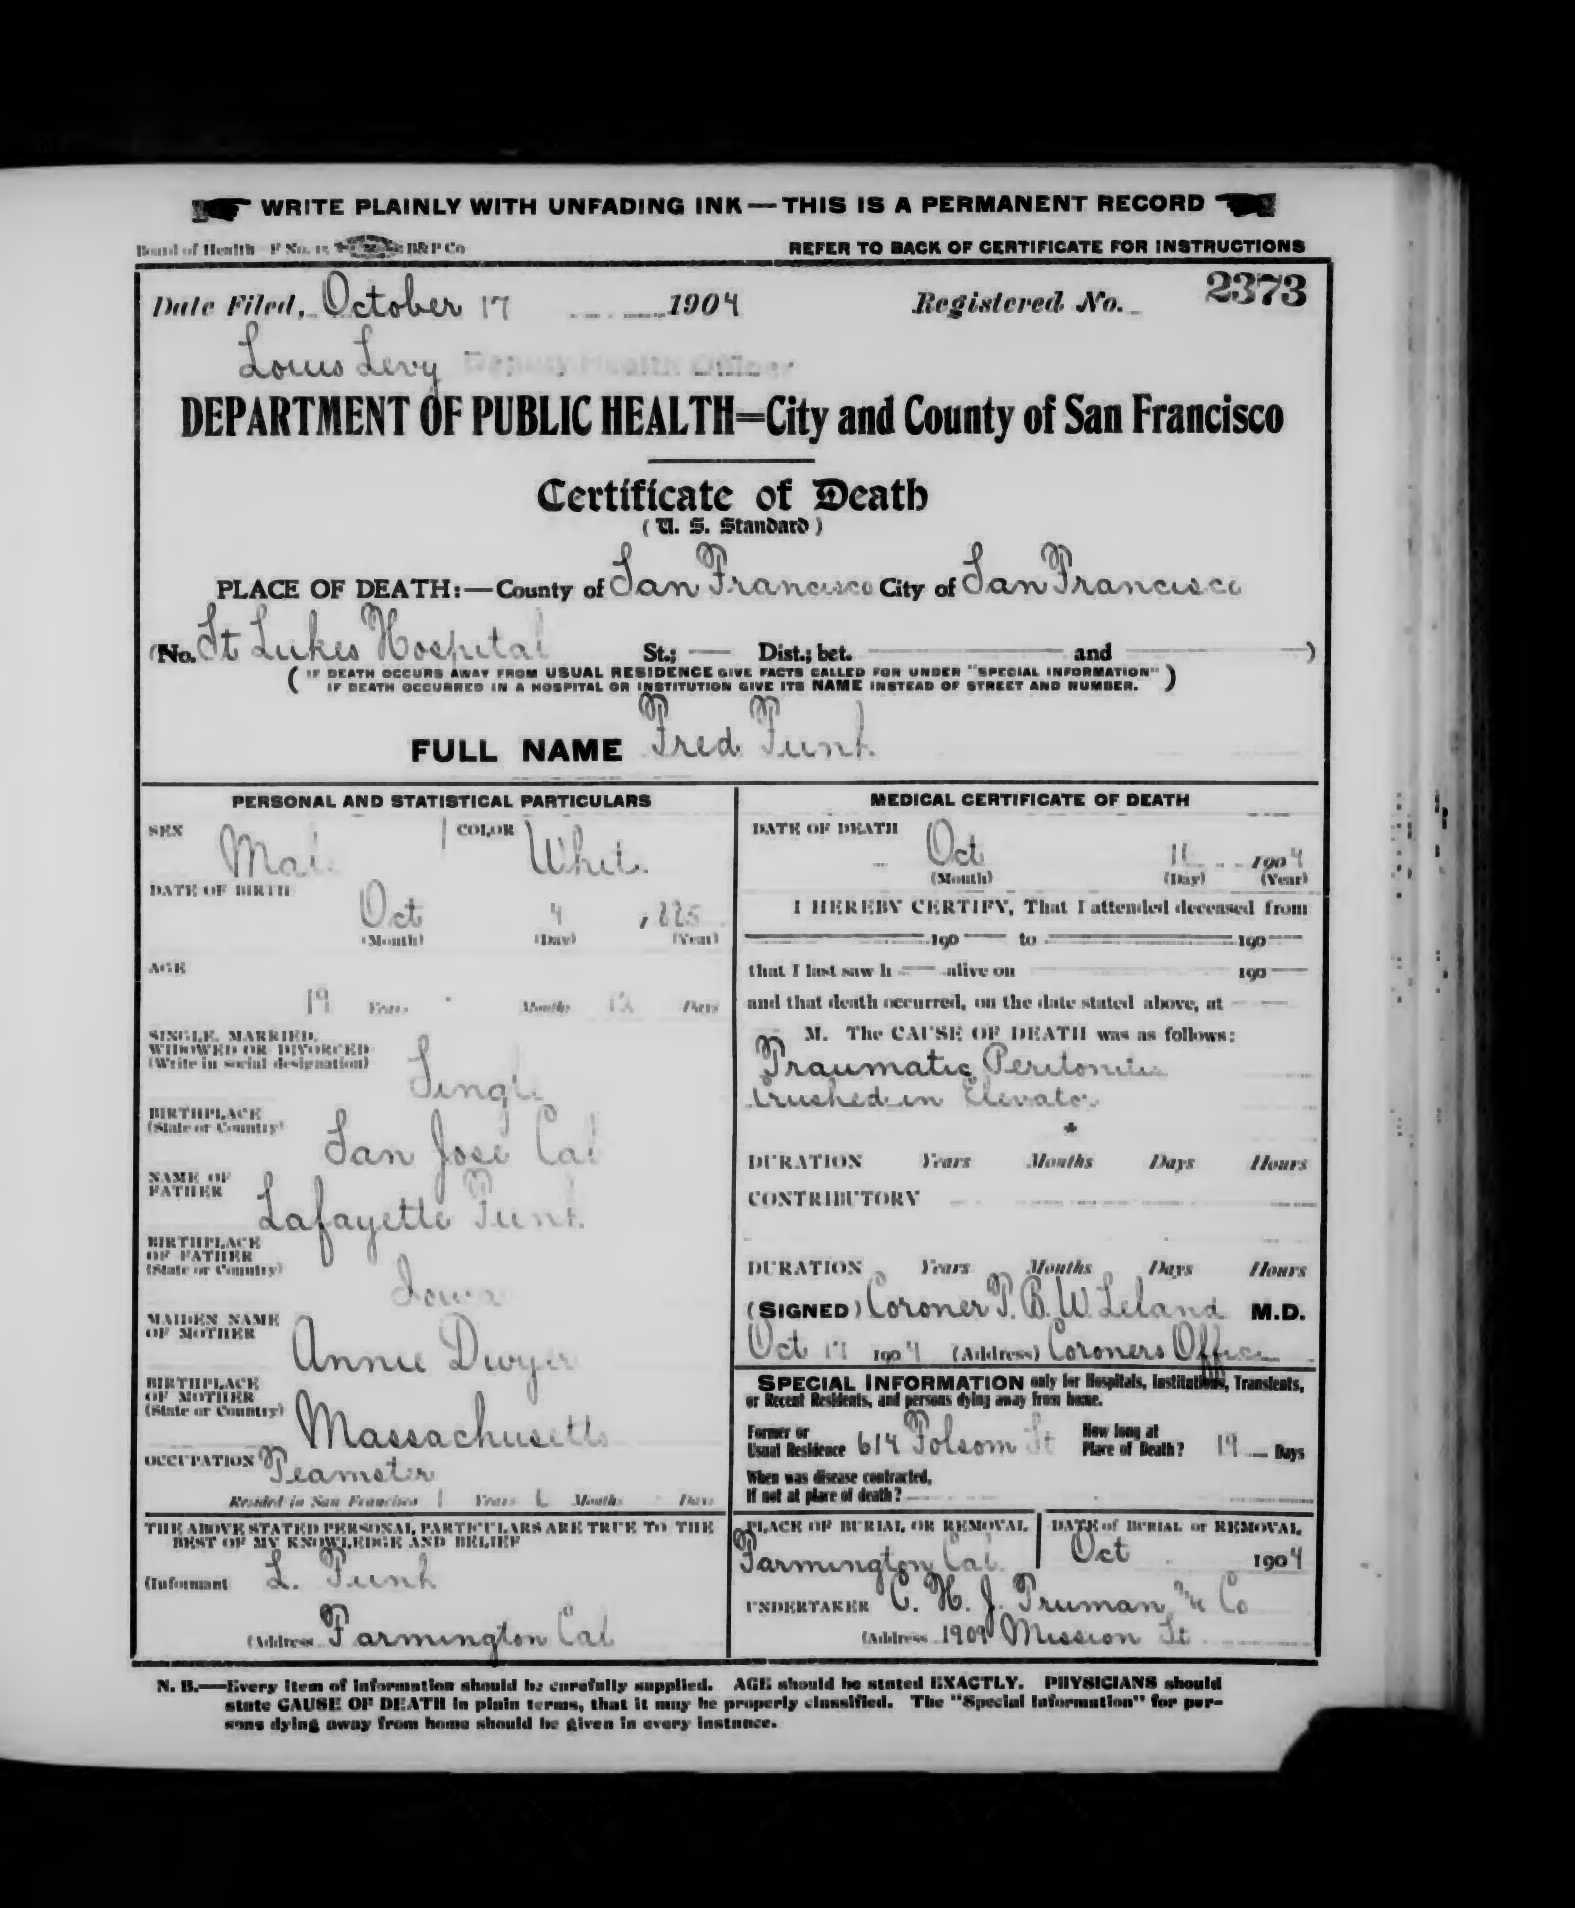 WRITE PLAINLY WITH UNFADING INK — THIS IS A PERMANENT RECORD
Board of Health F No. 15 B&P Co
REFER TO BACK OF CERTIFICATE FOR INSTRUCTIONS
Date Filed, October 17 1904 Registered No. 2373
Louis Levy Deputy Health Officer
DEPARTMENT OF PUBLIC HEALTH=City and County of San Francisco
Certificate of Death
(U. S. Standard)
PLACE OF DEATH:—County of San Francisco City of San Francisco
(No. St Lukes Hospital St.; — Dist.; bet. — and — )
(IF DEATH OCCURS AWAY FROM USUAL RESIDENCE GIVE FACTS CALLED FOR UNDER "SPECIAL INFORMATION"
IF DEATH OCCURRED IN A HOSPITAL OR INSTITUTION GIVE ITS NAME INSTEAD OF STREET AND NUMBER.)
FULL NAME Fred Funk
PERSONAL AND STATISTICAL PARTICULARS
SEX Male COLOR White
DATE OF BIRTH
Oct 4 1885
(Month) (Day) (Year)
AGE
19 Years Months Days
SINGLE, MARRIED,
WIDOWED OR DIVORCED
(Write in social designation) Single
BIRTHPLACE
(State or Country) San Jose Cal
NAME OF
FATHER Lafayette Funk
BIRTHPLACE
OF FATHER
(State or Country) Iowa
MAIDEN NAME
OF MOTHER Annie Dwyer
BIRTHPLACE
OF MOTHER
(State or Country) Massachusetts
OCCUPATION Teamster
Resided in San Francisco Years Months Days
THE ABOVE STATED PERSONAL PARTICULARS ARE TRUE TO THE
BEST OF MY KNOWLEDGE AND BELIEF
(Informant L. Funk
(Address Farmington Cal
MEDICAL CERTIFICATE OF DEATH
DATE OF DEATH
Oct 1904
(Month) (Day) (Year)
I HEREBY CERTIFY, That I attended deceased from
190 — to — 190 —
that I last saw h — alive on 190 —
and that death occurred, on the date stated above, at —
M. The CAUSE OF DEATH was as follows:
Traumatic Peritonitis
Crushed in Elevator
DURATION Years Months Days Hours
CONTRIBUTORY
DURATION Years Months Days Hours
(SIGNED) Coroner T. B. W. Leland M.D.
Oct 17 1904 (Address) Coroners Office
SPECIAL INFORMATION only for Hospitals, Institutions, Transients,
or Recent Residents, and persons dying away from home.
Former or
Usual Residence 614 Folsom St How long at
Place of Death? 19 Days
When was disease contracted,
If not at place of death?
PLACE OF BURIAL OR REMOVAL
Farmington Cal.
DATE of BURIAL or REMOVAL
Oct 1904
UNDERTAKER C. H. J. Truman & Co
(Address 1909 Mission St
N. B.—Every item of information should be carefully supplied. AGE should be stated EXACTLY. PHYSICIANS should
state CAUSE OF DEATH in plain terms, that it may be properly classified. The "Special Information" for per-
sons dying away from home should be given in every instance.